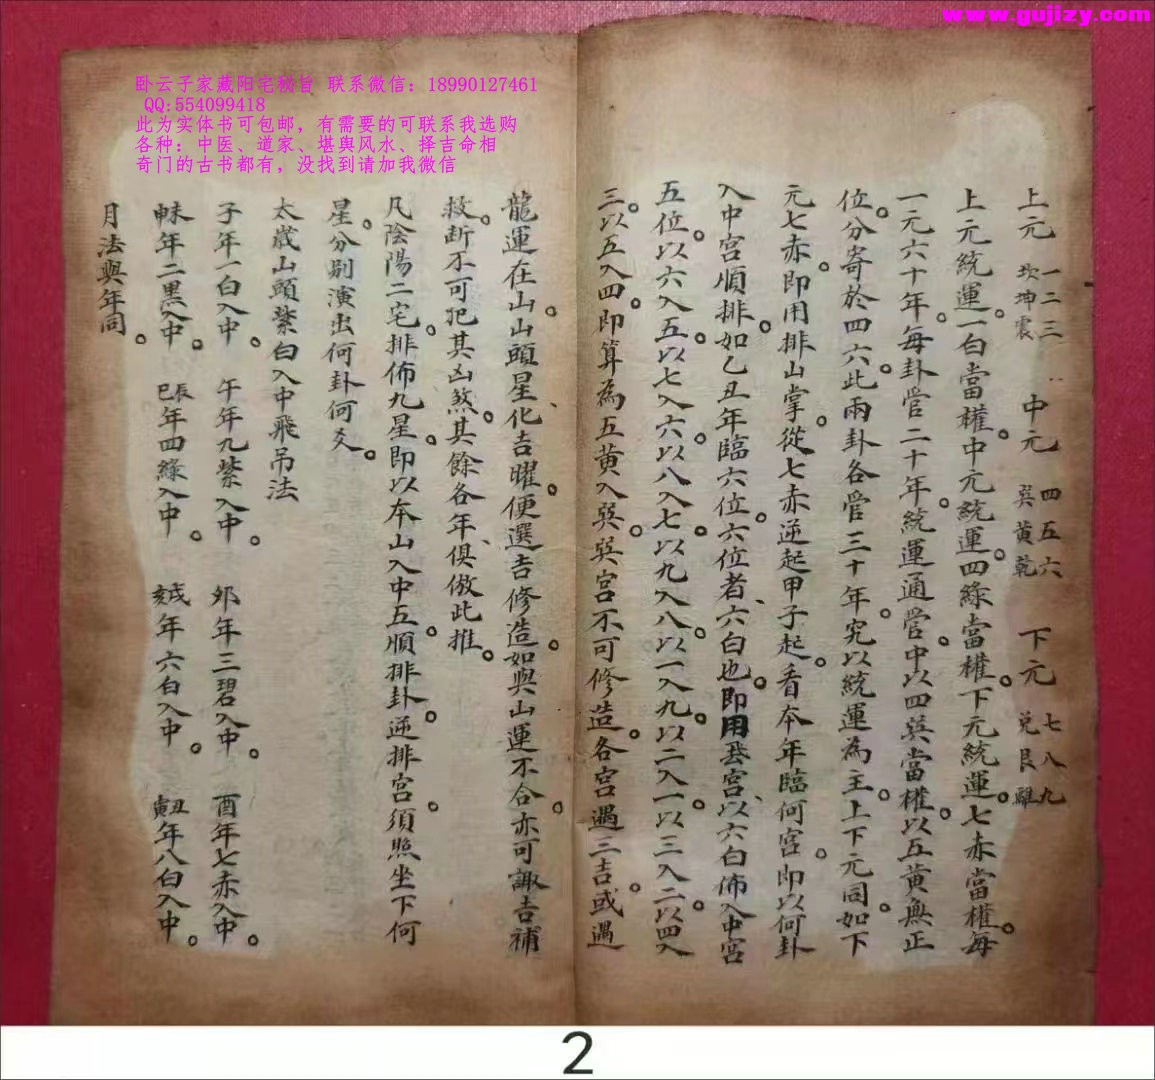 www.gujizy.com
卧云子家藏阳宅秘旨 联系微信：18990127461
QQ:554099418
此为实体书可包邮，有需要的可联系我选购
各种：中医、道家、堪舆风水、择吉命相
奇门的古书都有，没找到请加我微信
上元 一二三 坎坤震 中元 四五六 巽黄乾 下元 七八九 兑艮離
上元統運。一白當權。中元統運。四綠當權。下元統運。七赤當權。每
一元六十年。每卦管二十年。統運通管。中以四巽當權。以五黄無正
位。分寄於四六。此兩卦各管三十年。究以統運為主。上下元同。如下
元七赤。即用排山掌。從七赤逆起甲子起。看本年臨何宮。即以何卦
入中宮順排。如乙丑年臨六位。六位者、六白也。即用宮、以六白佈入中宮
五位。以六入五。以七入六。以八入七。以九入八。以一入九。以二入一。以三入二。以四入
三。以五入四。即算為五黄入巽。巽宮不可修造。各宮遇三吉。或遇
龍運在山。山頭星化、吉曜。便選吉修造。如與山運不合。亦可諏吉補
救。断不可犯其凶煞。其餘各年、俱倣此推。
凡陰陽二宅。排佈九星。即以本山入中五。順排卦。逆排宮。須照坐下何
星。分别演出何卦何爻。
太歲山頭紫白入中飛吊法
子年一白入中。 午年九紫入中。 卯年三碧入中。 酉年七赤入中。
申未年二黑入中。 巳辰年四綠入中。 亥戌年六白入中。 寅丑年八白入中。
月法與年同。
2